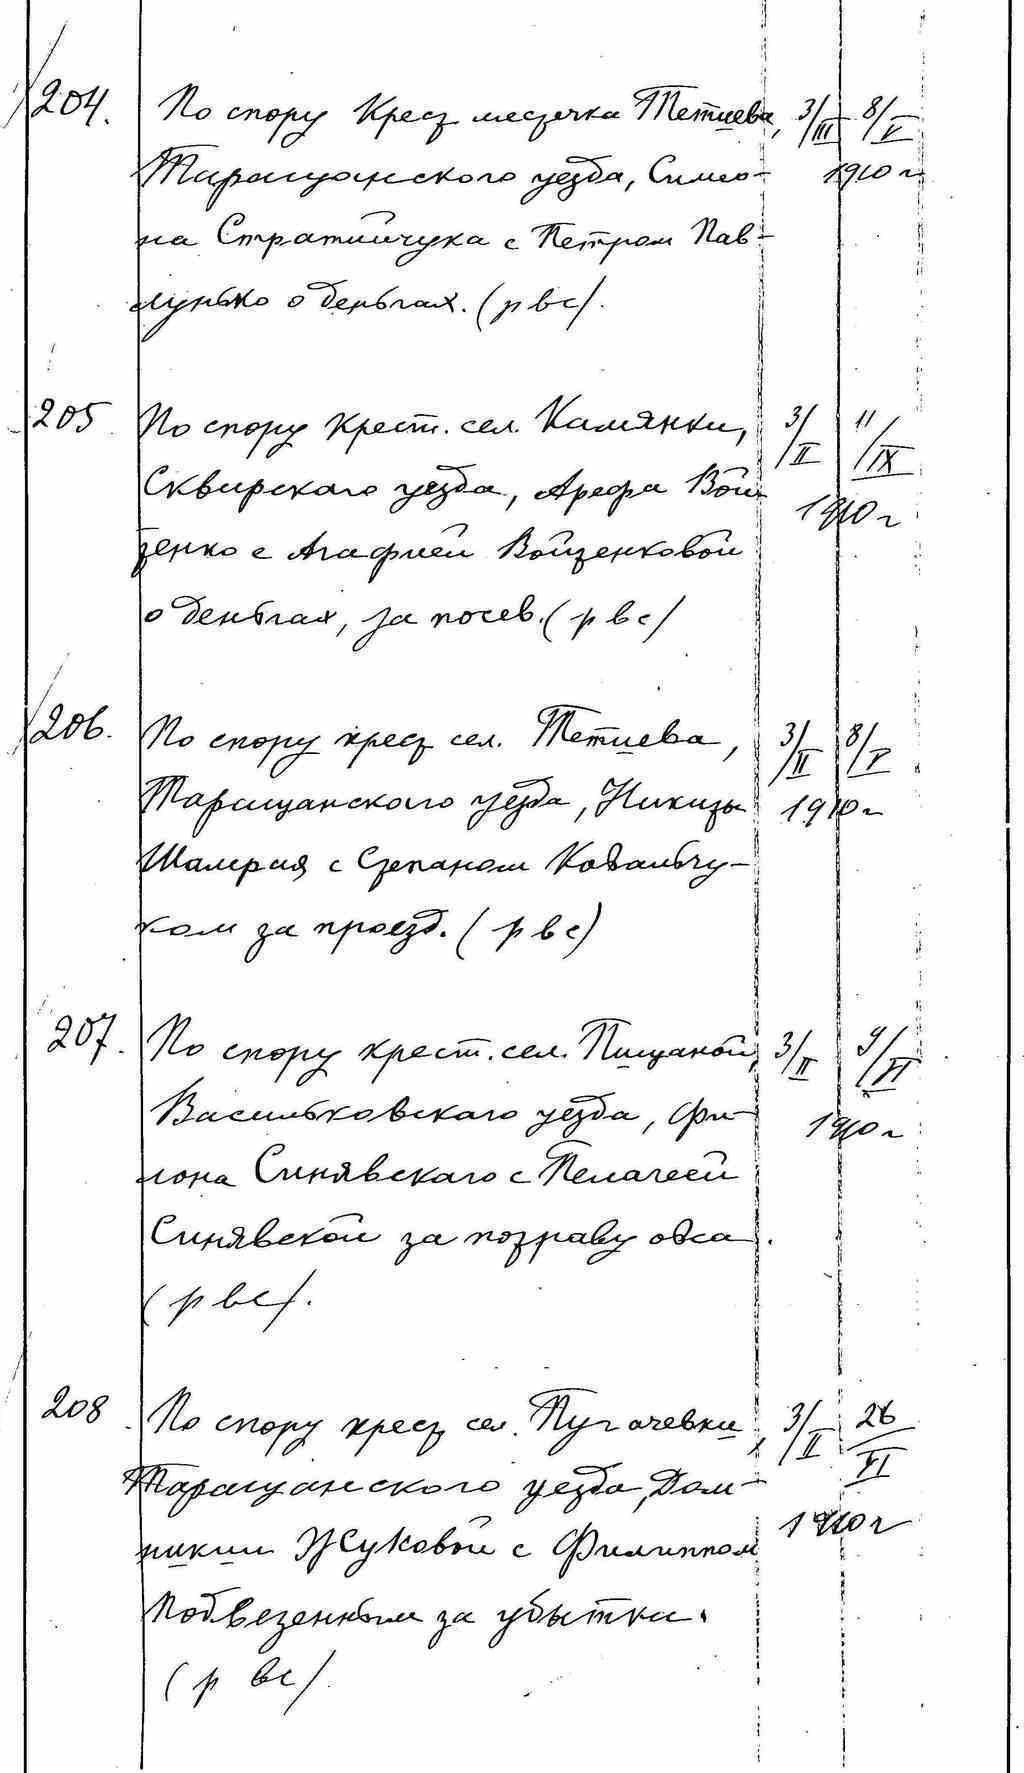 204. По спору Крест местечка Тетиева, 3/III 8/V
Таращанского уезда, Симео- 1910 г
на Стратийчука с Петром Пав-
лунько о деньгах. (р вс).
205 По спору Крест. сел. Камянки, 3/II 11/IX
Сквирскаго уезда, Арефа Вой- 1910 г
тенко с Агафией Войтенковой
о деньгах, за посев. (р вс)
206. По спору крест сел. Тетиева, 3/II 8/V
Таращанского уезда, Никиты 1910 г
Шамрая с Степаном Ковальчу-
ком за проезд. (р вс)
207. По спору крест. сел. Пищаной, 3/II 9/VI
Васильковскаго уезда, Фи- 1910 г
лона Синявскаго с Пелагеей
Синявской за потраву овса.
(р вс).
208 По спору крест сел. Пугачевки, 3/II 26/VI
Таращанского уезда, Дом- 1910 г
никии Жуковой с Филиппом
Подвезенным за убытки.
(р вс).